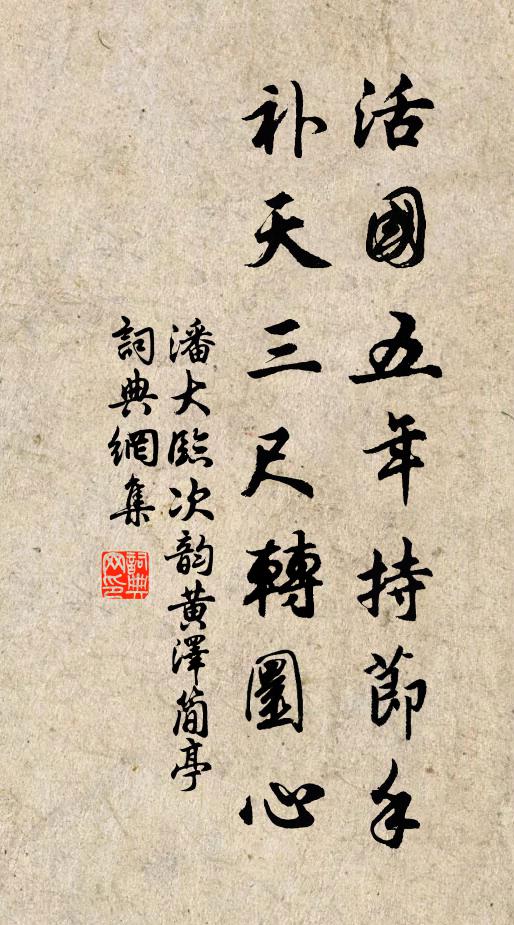 活國五年持節手
补天三尺轉圜心
潘大臨次韵黄澤蕳亭
詞典網集
詞典网印